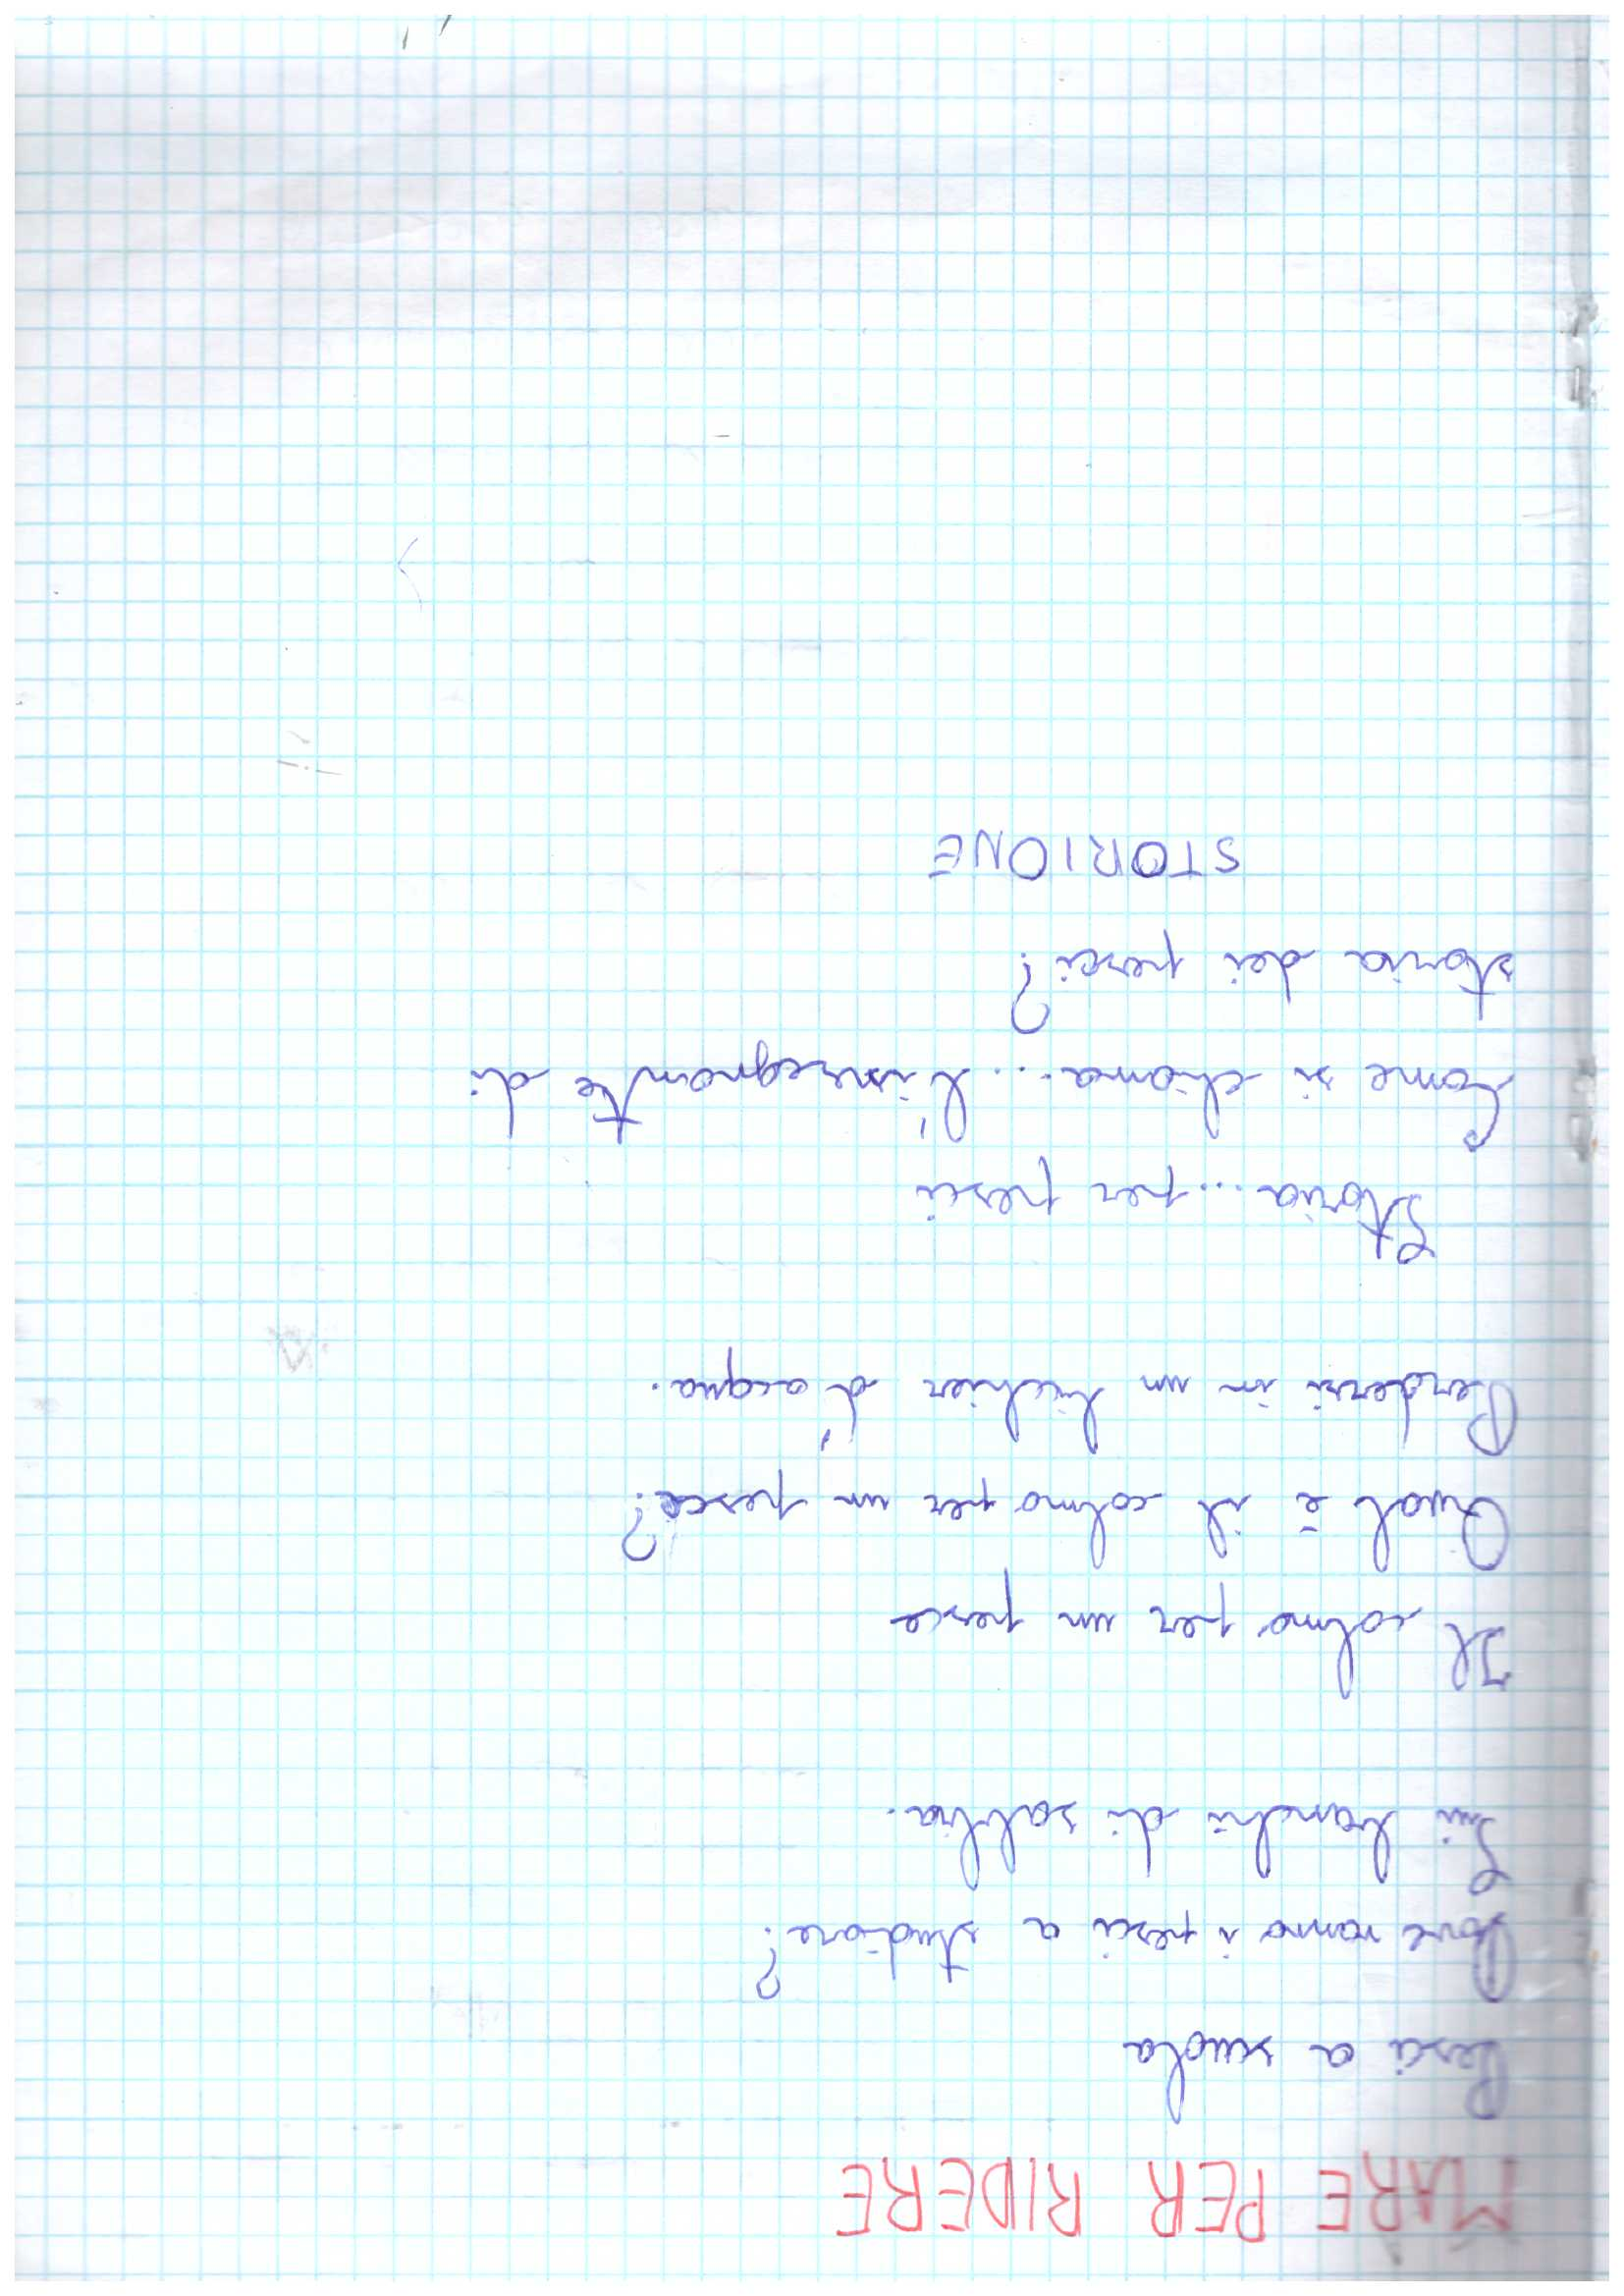 MARE PER RIDERE
Pesci a scuola
Dove vanno i pesci a studiare?
Sui banchi di sabbia.
Il colmo per un pesce
Qual è il colmo per un pesce?
Perdersi in un bicchier d'acqua.
Storia... per pesci
Come si chiama... l'insegnante di
storia dei pesci?
STORIONE